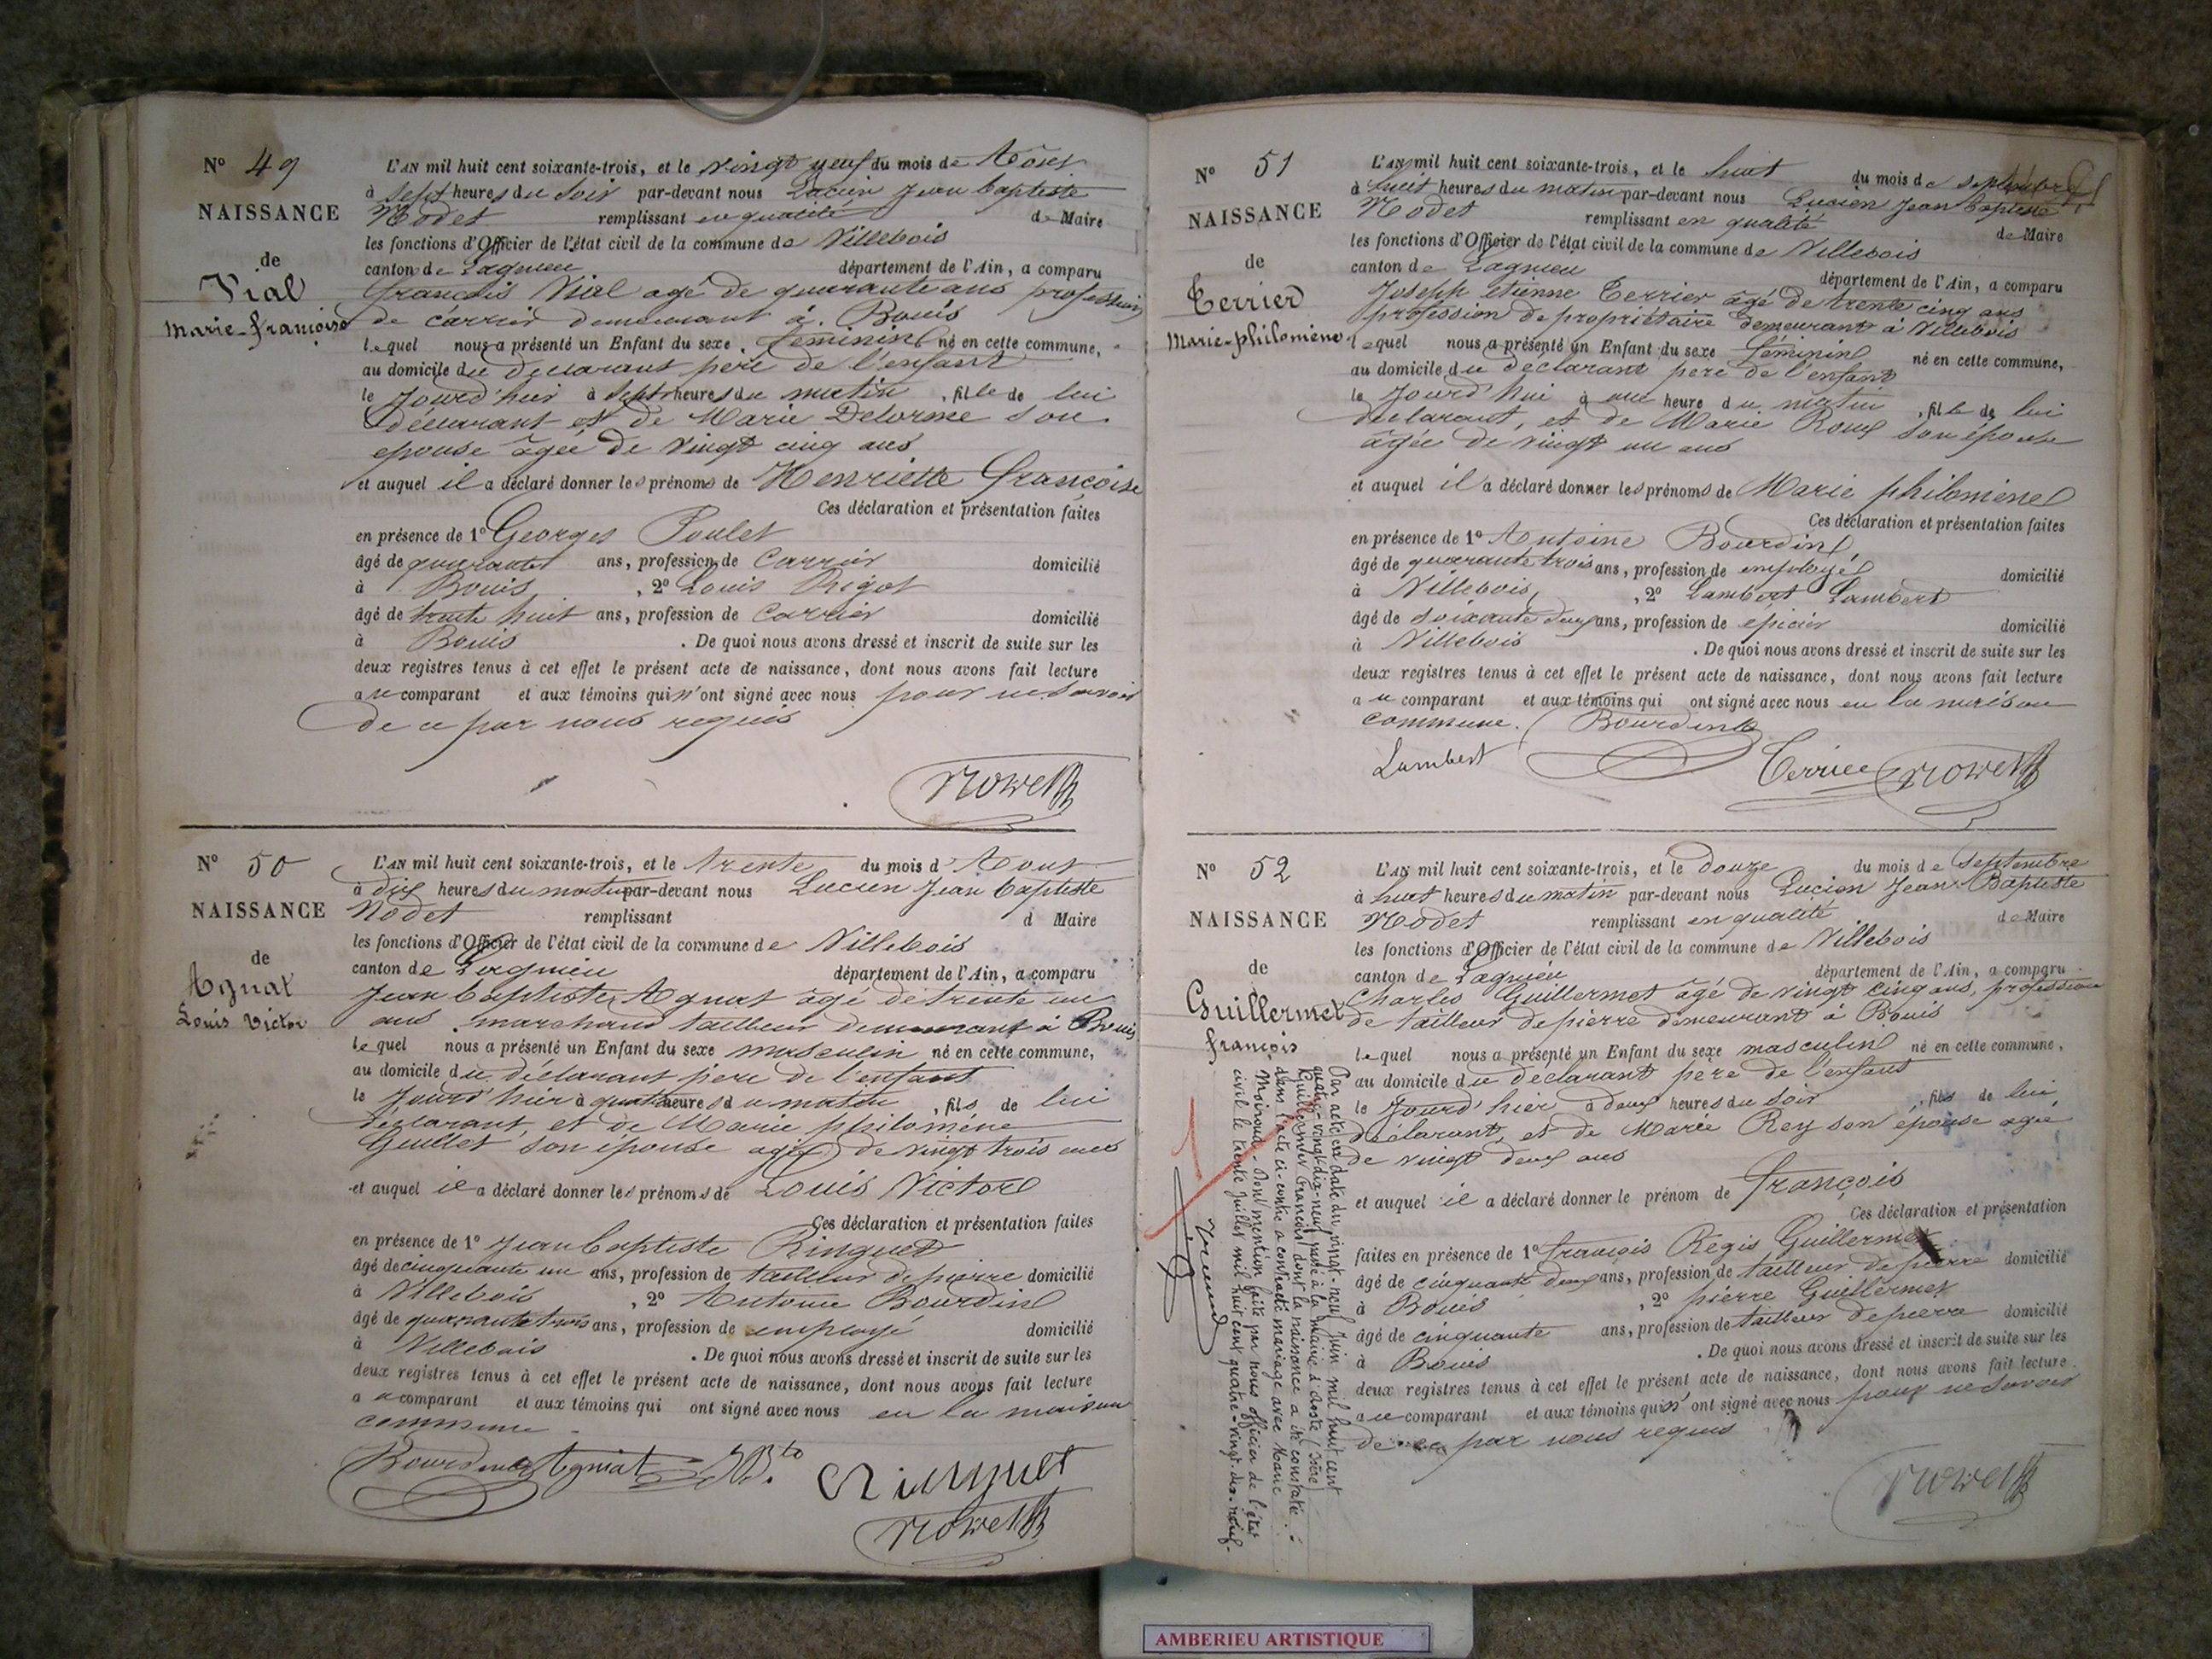 N° 49
NAISSANCE
de
Vial
Marie-françoise
L'AN mil huit cent soixante-trois, et le vingt neuf du mois de Aôut
à sept heures du soir par-devant nous Lucien Jean baptiste
Nodet remplissant en qualité de Maire
les fonctions d'Officier de l'état civil de la commune de Villebois
canton de Lagnieu département de l'Ain, a comparu
françois Vial agé de quarante ans profession
de carrier demeurant à Bouis
lequel nous a présenté un Enfant du sexe féminin né en cette commune,
au domicile du déclarant père de l'enfant
le Jourd'hui à sept heures du matin, fille de lui
déclarant et de Marie Delorme son
epouse âgée de vingt cinq ans
et auquel il a déclaré donner les prénoms de Henriette Françoise
Ces déclaration et présentation faites
en présence de 1° Georges Poulet
âgé de quarante ans, profession de Carrier domicilié
à Bouis, 2° Louis Rigot
âgé de trente huit ans, profession de Carrier domicilié
à Bouis. De quoi nous avons dressé et inscrit de suite sur les
deux registres tenus à cet effet le présent acte de naissance, dont nous avons fait lecture
au comparant et aux témoins qui n'ont signé avec nous pour ne savoir
de ce par nous requis
N° 50
NAISSANCE
de
Agnat
Louis Victor
L'AN mil huit cent soixante-trois, et le trente du mois d'Aout
à dix heures du matin par-devant nous Lucien Jean baptiste
Nodet remplissant d Maire
les fonctions d'Officier de l'état civil de la commune de Villebois
canton de Lagnieu département de l'Ain, a comparu
Jean baptiste Agnat âgé de trente un
ans marchand tailleur demeurant à Bouis
lequel nous a présenté un Enfant du sexe masculin né en cette commune,
au domicile du déclarant père de l'enfant
le Jourd'hier à quatre heures du matin, fils de lui
déclarant, et de Marie philomène
Guillet son épouse agée de vingt trois ans
et auquel il a déclaré donner les prénoms de Louis Victor
Ces déclaration et présentation faites
en présence de 1° Jean baptiste Ringuet
âgé de cinquante un ans, profession de tailleur de pierre domicilié
à Villebois, 2° Antoine Bourdin
âgé de quarante trois ans, profession de employé domicilié
à Villebois. De quoi nous avons dressé et inscrit de suite sur les
deux registres tenus à cet effet le présent acte de naissance, dont nous avons fait lecture
au comparant et aux témoins qui ont signé avec nous en la maison
commune.
Bourdin Agniat Ringuet
N° 51
NAISSANCE
de
Terrier
Marie-philomène
L'AN mil huit cent soixante-trois, et le huit du mois de septembre
à huit heures du matin par-devant nous Lucien Jean baptiste
Nodet remplissant en qualité de Maire
les fonctions d'Officier de l'état civil de la commune de Villebois
canton de Lagnieu département de l'Ain, a comparu
Joseph etienne Terrier âgé de trente cinq ans
profession de propriétaire demeurant à Villebois
lequel nous a présenté un Enfant du sexe féminin né en cette commune,
au domicile du déclarant père de l'enfant
le Jourd'hui à une heure du matin, fille de lui
déclarant, et de Marie Roux son épouse
âgée de vingt un ans
et auquel il a déclaré donner les prénoms de Marie philomène
Ces déclaration et présentation faites
en présence de 1° Antoine Bourdin
âgé de quarante trois ans, profession de employé domicilié
à Villebois, 2° Lambert Lambert
âgé de soixante deux ans, profession de épicier domicilié
à Villebois. De quoi nous avons dressé et inscrit de suite sur les
deux registres tenus à cet effet le présent acte de naissance, dont nous avons fait lecture
au comparant et aux témoins qui ont signé avec nous en la maison
commune. Bourdin
Lambert Terrier
N° 52
NAISSANCE
de
Guillermet
françois
L'AN mil huit cent soixante-trois, et le douze du mois de Septembre
à huit heures du matin par-devant nous Lucien Jean Baptiste
Nodet remplissant en qualité de Maire
les fonctions d'Officier de l'état civil de la commune de Villebois
canton de Lagnieu département de l'Ain, a comparu
Charles Guillermet âgé de vingt cinq ans, profession
de tailleur de pierre demeurant à Bouis
lequel nous a présenté un Enfant du sexe masculin né en cette commune,
au domicile du déclarant père de l'enfant
le Jourd'hier à deux heures du soir, fils de lui
déclarant, et de Marie Rey son épouse agée
de vingt deux ans
et auquel il a déclaré donner le prénom de françois
Ces déclaration et présentation
faites en présence de 1° françois Régis Guillermet
âgé de cinquante deux ans, profession de tailleur de pierre domicilié
à Bouis, 2° pierre Guillermet
âgé de cinquante ans, profession de tailleur de pierre domicilié
à Bouis. De quoi nous avons dressé et inscrit de suite sur les
deux registres tenus à cet effet le présent acte de naissance, dont nous avons fait lecture
au comparant et aux témoins qui n'ont signé avec nous pour ne savoir
de ce par nous requis
Par acte en date du vingt-neuf Juin mil huit cent
quatre-vingt-dix-neuf passé à la mairie d (Isère)
Guillermet François dont la naissance a été constatée
dans l'acte ci-contre a contracté mariage avec Marie
Moiroud. Dont mention faite par nous officier de l'état
civil le trente juillet mil huit cent quatre-vingt-dix-neuf.
AMBERIEU ARTISTIQUE